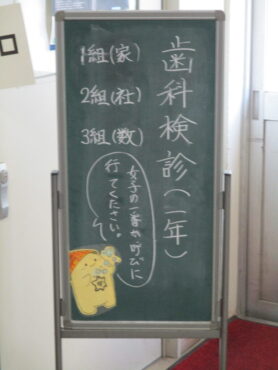 歯科検診(二年)
1組(家)
2組(社)
3組(数)
女子の一番が呼びに
行てください。